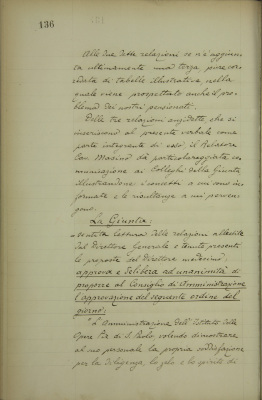 136
Alle due dette relazioni se n'è aggiun-
ta ultimamente una terza, pure cor-
redata di tabelle illustrative, nella
quale viene prospettato anche il pro-
blema dei nostri pensionati.
Delle tre relazioni anzidette, che si
inseriscono al presente verbale come
parte integrante di esso, il Relatore
Cav. Masino dà particolareggiata co-
municazione ai Colleghi della Giunta
illustrandone i concetti a cui sono in-
formate e le risultanze a cui perven-
gono.
La Giunta:
sentita lettura delle relazioni allestite
dal Direttore Generale e tenute presenti
le proposte del Direttore medesimo,
approva e delibera ad unanimità di
proporre al Consiglio di Amministrazione
l'approvazione del seguente ordine del
giorno:
L'Amministrazione dell'Istituto delle
Opere Pie di S. Paolo, volendo dimostrare
al suo personale la propria soddisfazione
per la diligenza, lo zelo e lo spirito di